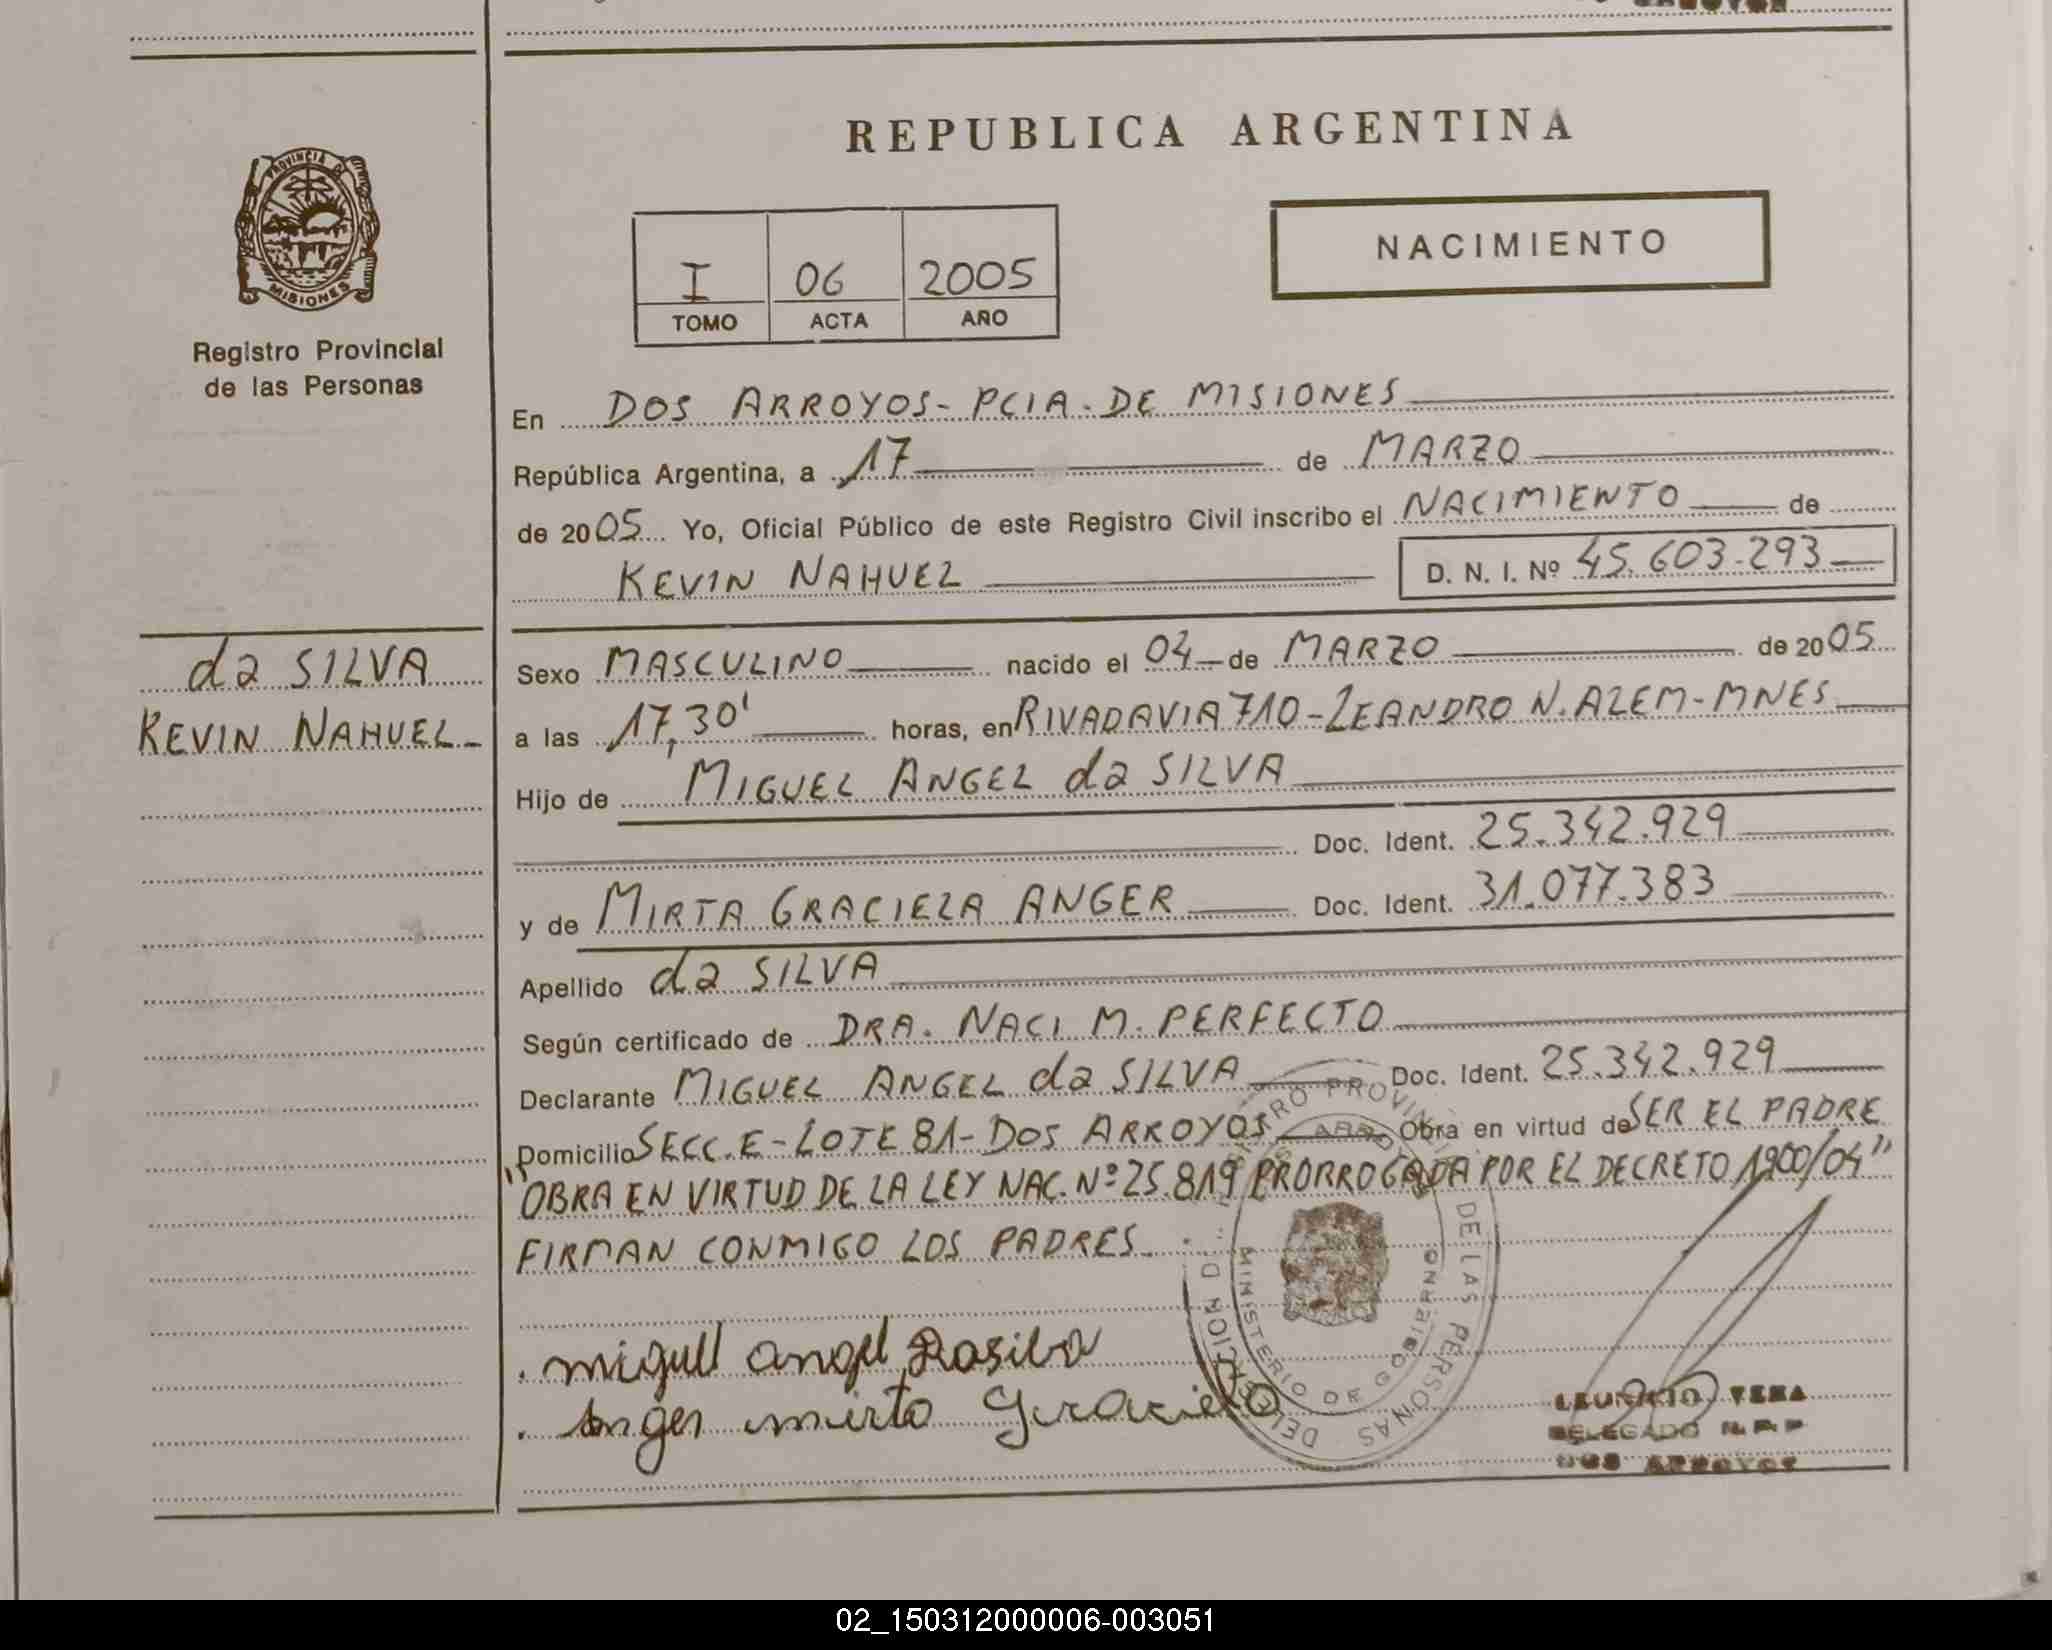 REPUBLICA ARGENTINA
PROVINCIA DE
MISIONES
Registro Provincial
de las Personas
I 06 2005
TOMO ACTA AÑO
NACIMIENTO
En DOS ARROYOS - PCIA. DE MISIONES
República Argentina, a 17 de MARZO
de 2005 Yo, Oficial Público de este Registro Civil inscribo el NACIMIENTO de
KEVIN NAHUEL D. N. I. Nº 45.603.293
da SILVA
KEVIN NAHUEL
Sexo MASCULINO nacido el 04 de MARZO de 2005
a las 17,30' horas, en RIVADAVIA 710 - LEANDRO N. ALEM - MNES
Hijo de MIGUEL ANGEL da SILVA
Doc. Ident. 25.342.929
y de MIRTA GRACIELA ANGER Doc. Ident. 31.077.383
Apellido da SILVA
Según certificado de DRA. NACI M. PERFECTO
Declarante MIGUEL ANGEL da SILVA Doc. Ident. 25.342.929
Domicilio SECC. E - LOTE 81 - DOS ARROYOS Obra en virtud de SER EL PADRE
"OBRA EN VIRTUD DE LA LEY NAC. Nº 25.819 PRORROGADA POR EL DECRETO 1900/04"
FIRMAN CONMIGO LOS PADRES.
miguel angel Dasilva
Anger mirta Graciela
DELEGADO
DOS ARROYOS
02_150312000006-003051